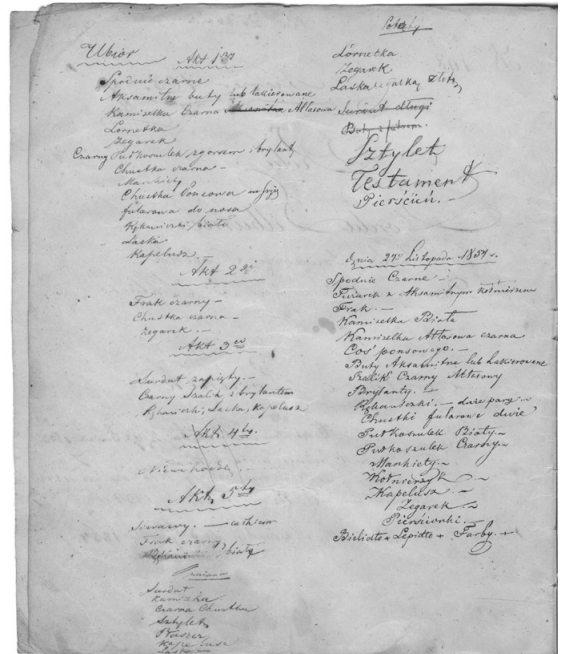 Ubior
Akt 1szy
Spodnie czarne
Aksamitne buty lub lakierowane
Kamizelka Czarna Atłasowa
Lornetka
Zegarek
Czarny Półkoszulek z gorsem i brylanty
Chustka czarna -
Mankiety
Chustka Ponsowa na szyję
fularowa do nosa
Rękawiczki białe
Laska
Kapelusz
Akt 2gi
Frak czarny -
Chustka czarna -
Zegarek. -
Akt 3ci
Surdut zapięty. -
Czarny Szalik i brylantem
Rękawiczki, Laska, Kapelusz
Akt 4ty
Akt 5ty
całkiem
Frak czarny
biały
Surdut
Kamizelka
Czarna Chustka
Sztylet
Kapelusz
Laska
Potrzeby
Lornetka
Zegarek
Laska z gałką złotą
Surdut długi
Buty z futrem
Sztylet
Testament
Pierścień. -
dnia 27 Listopada 1854 r.
Spodnie Czarne -
z Aksamitnym kołnierzem
Frak. -
Kamizelka Biała
Kamizelka Atłasowa czarna
Coś ponsowego. -
Buty Aksamitne lub Lakierowane
Szalik Czarny Atłasowy
Brylanty. -
Rękawiczki. - duże pary -
Chustki fularowe dwie
Półkoszulek Biały. -
Półkoszulek Czarny. -
Mankiety. -
Kołnierzyk -
Kapelusz -
Zegarek -
Pierścionki. -
Bielidło + Lepidło + Farby. +